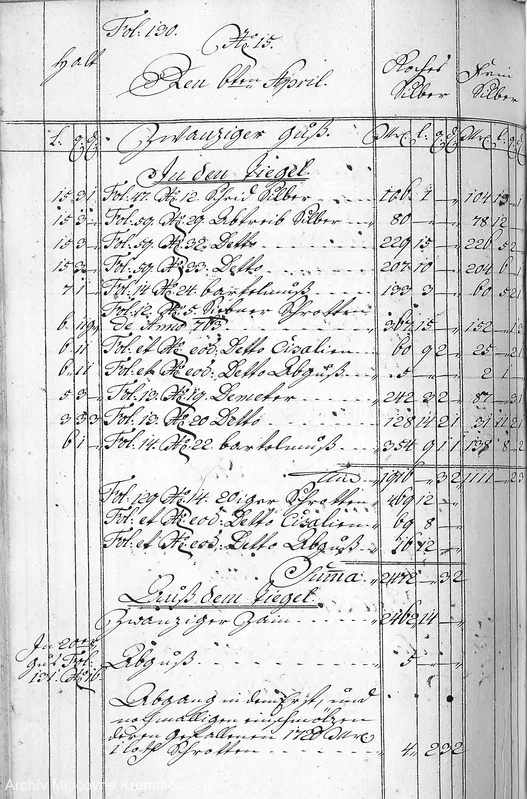 Fol: 130.
No 15.
Halt
Den 6ten April.
Roches Silber
Fein Silber
L. q d
Zwanziger Guß.
Mrc l. q d
Mrc l. q d
In den Tiegel.
15 3 1 Fol: 47. No 12. Scheid Silber 106. 7 104 13
15 3 Fol: 59. No 29. Abtreib Silber 80 78 12
15 3 Fol: 59. No 32. Detto 229 15 226 5 2
15 3 Fol: 59. No 33. Detto 207 10 204 6
7 1 Fol: 14. No 24. bartolmuß 133 3 60 5 2 1
Fol: 12. No 5. Siebner Schrotten
de Anno 763 367 15 152
6. 11 Fol: et No eod: Detto Cisalien 60 9 2 25
6. 11 Fol: et No eod: Detto Abguß 5 2 1
5 3 Fol: 13. No 19. Demeter 242 3 2 87 3 1
3 3 3 Fol: 13. No 20 Detto 128 14 2 1 31 11 2 1
6 1 Fol: 14. No 22. bartolmuß 354 9 1 1 138 8 2
1916 3 2 1111 2 3
Fol: 129 No 14. 20iger Schrotten 469 12
Fol: et No eod: Detto Cisalien 69 8
Fol: et No eod: Detto Abguß 16 12
Suma: 2472 3 2
Auß dem Tiegel.
Zwanziger Zain 2462 14
In 20er
Guß Fol:
131. No 16.
Abguß 5
Abgang in dem Erst, und
nochmalligen einschmölzen
deren gefallenen 1728 Mrc
1 loth Schrotten 4. 2 3 2
Archív Mincovňe Kremnica